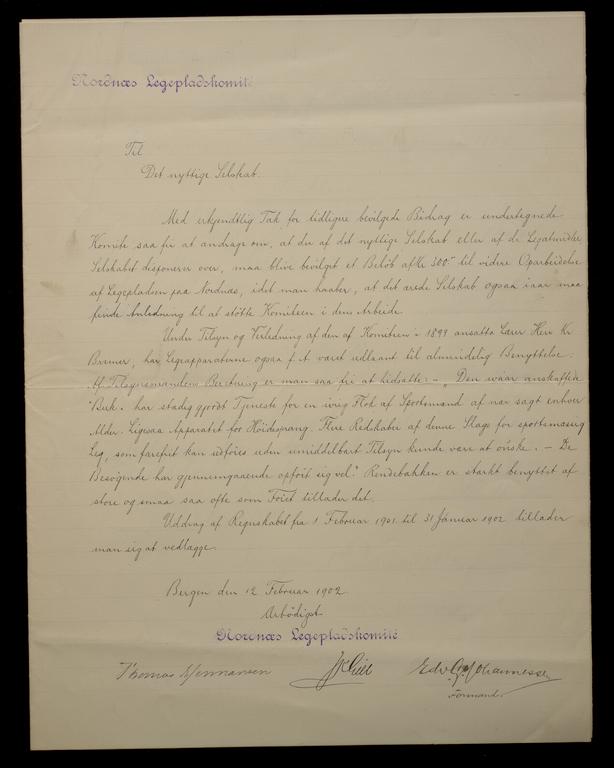 Nordnæs Legepladskomité
Til
Det nyttige Selskab.
Med erkjendtlig Tak for tidligere bevilgede Bidrag er undertegnede
Komite saa fri at andrage om, at der af det nyttige Selskab eller af de Legatmidler,
Selskabet disponerer over, maa blive bevilget et Beløb af Kr 300 til videre Oparbeidelse
af Legepladsen paa Nordnæs, idet man haaber, at det ærede Selskab ogsaa iaar maa
finde Anledning til at støtte Komiteen i dens Arbeide.
Under Tilsyn og Veiledning af den af Komiteen i 1899 ansatte Lærer Herr Kr
Bremer, har Legeapparaterne ogsaa f. A. været udlaant til almindelig Benyttelse.
Af Tilsynsmandens Beretning er man saa fri at hidsætte: „Den ifjor anskaffede
Buk har stadig gjordt Tjeneste for en ivrig Flok af Sportsmænd af nær sagt enhver
Alder. Ligesaa Apparatet for Høidesprang. Flere Redskaber af denne Slags for sportsmæssig
Leg, som farefrit kan udføres uden umiddelbart Tilsyn kunde være at ønske. — De
Besøgende har gjennemgaaende opført sig vel." Rendebakken er stærkt benyttet af
store og smaa saa ofte som Føret tillader det.
Uddrag af Regnskabet fra 1 Februar 1901 til 31 Januar 1902 tillader
man sig at vedlægge.
Bergen den 12 Februar 1902
Ærbødigst
Nordnæs Legepladskomité
Thomas Hermansen Edv. Johannessen
Formand.